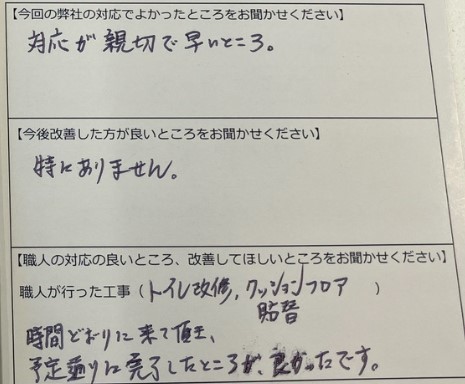 【今回の弊社の対応でよかったところをお聞かせください】
対応が親切で早いところ。
【今後改善した方が良いところをお聞かせください】
特にありません。
【職人の対応の良いところ、改善してほしいところをお聞かせください】
職人が行った工事（トイレ改修，クッションフロア）
貼替
時間どおりに来て頂き、
予定通りに完了したところが、良かったです。